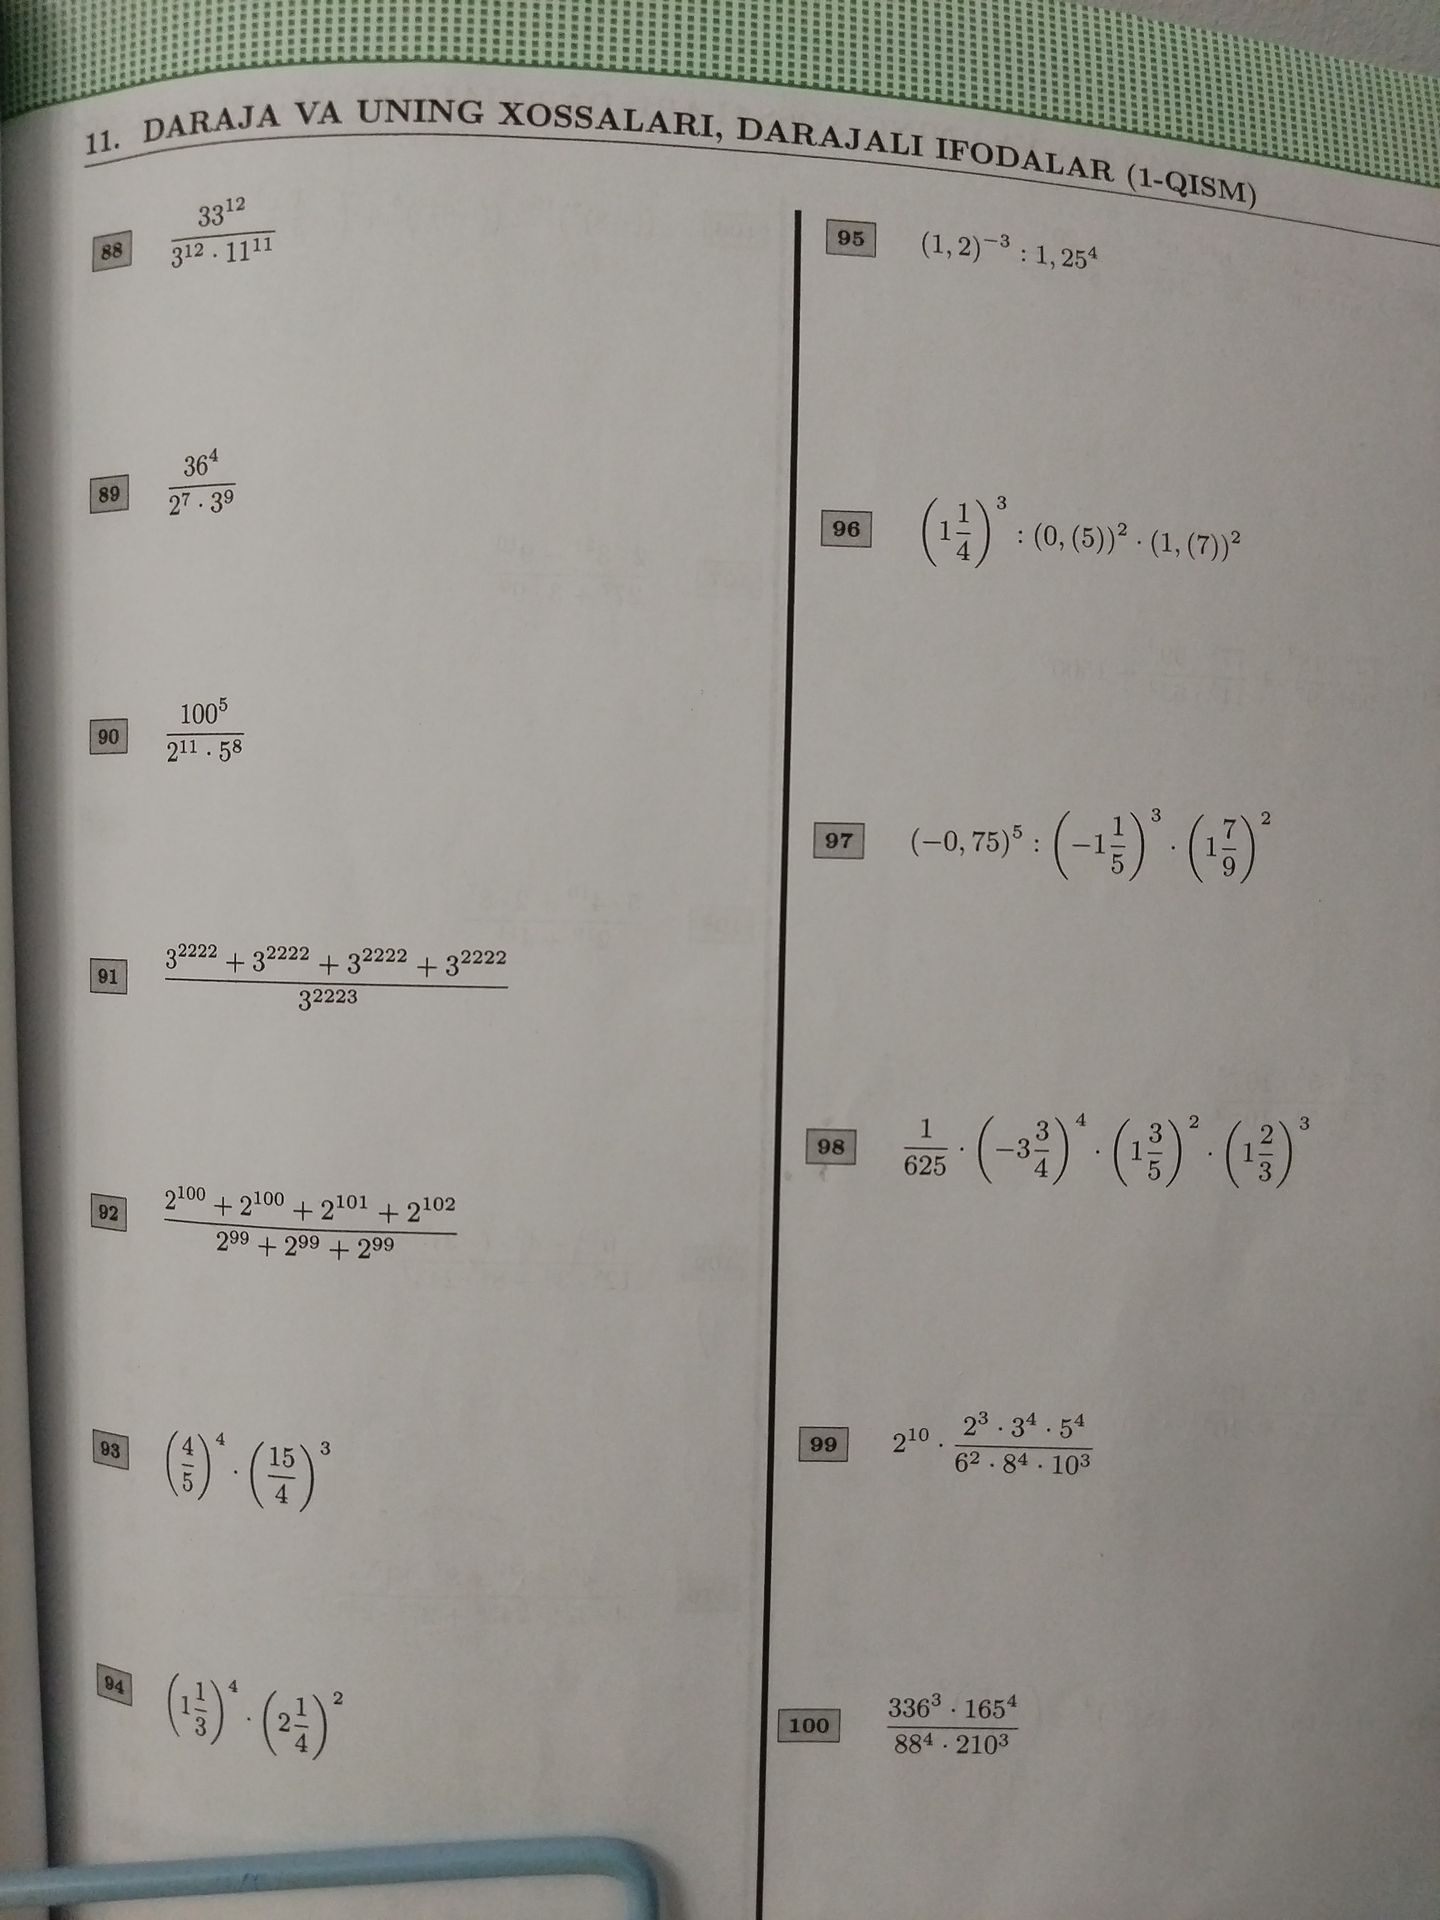 11. DARAJA VA UNING XOSSALARI, DARAJALI IFODALAR (1-QISM)
88 \frac{33^{12}}{3^{12} \cdot 11^{11}}
89 \frac{36^4}{2^7 \cdot 3^9}
90 \frac{100^5}{2^{11} \cdot 5^8}
91 \frac{3^{2222} + 3^{2222} + 3^{2222} + 3^{2222}}{3^{2223}}
92 \frac{2^{100} + 2^{100} + 2^{101} + 2^{102}}{2^{99} + 2^{99} + 2^{99}}
93 \left(\frac{4}{5}\right)^4 \cdot \left(\frac{15}{4}\right)^3
94 \left(1\frac{1}{3}\right)^4 \cdot \left(2\frac{1}{4}\right)^2
95 (1,2)^{-3} : 1,25^4
96 \left(1\frac{1}{4}\right)^3 : (0,(5))^2 \cdot (1,(7))^2
97 (-0,75)^5 : \left(-1\frac{1}{5}\right)^3 \cdot \left(1\frac{7}{9}\right)^2
98 \frac{1}{625} \cdot \left(-3\frac{3}{4}\right)^4 \cdot \left(1\frac{3}{5}\right)^2 \cdot \left(1\frac{2}{3}\right)^3
99 2^{10} \cdot \frac{2^3 \cdot 3^4 \cdot 5^4}{6^2 \cdot 8^4 \cdot 10^3}
100 \frac{336^3 \cdot 165^4}{88^4 \cdot 210^3}